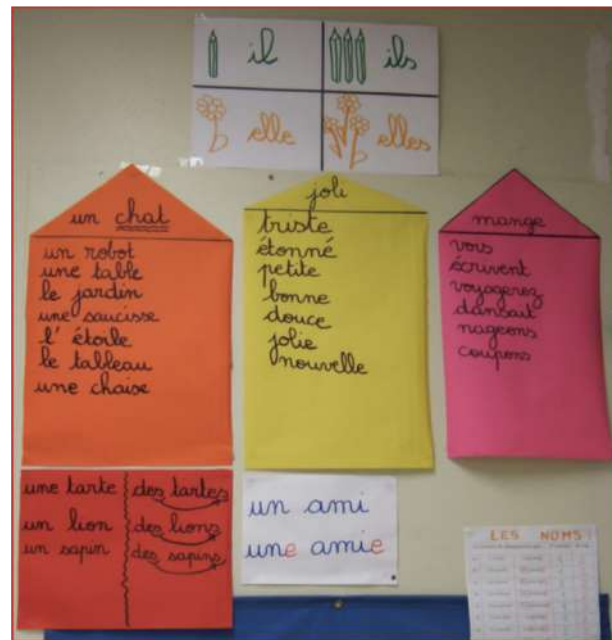 il ils
elle elles
un chat
un robot
une table
le jardin
une saucisse
l' étoile
le tableau
une chaise
joli
triste
étonné
petite
bonne
douce
jolie
nouvelle
mange
vois
écrivent
voyagerez
dansait
nageons
coupons
une tarte des tartes
un lion des lions
un sapin des sapins
un ami
une amie
LES NOMS